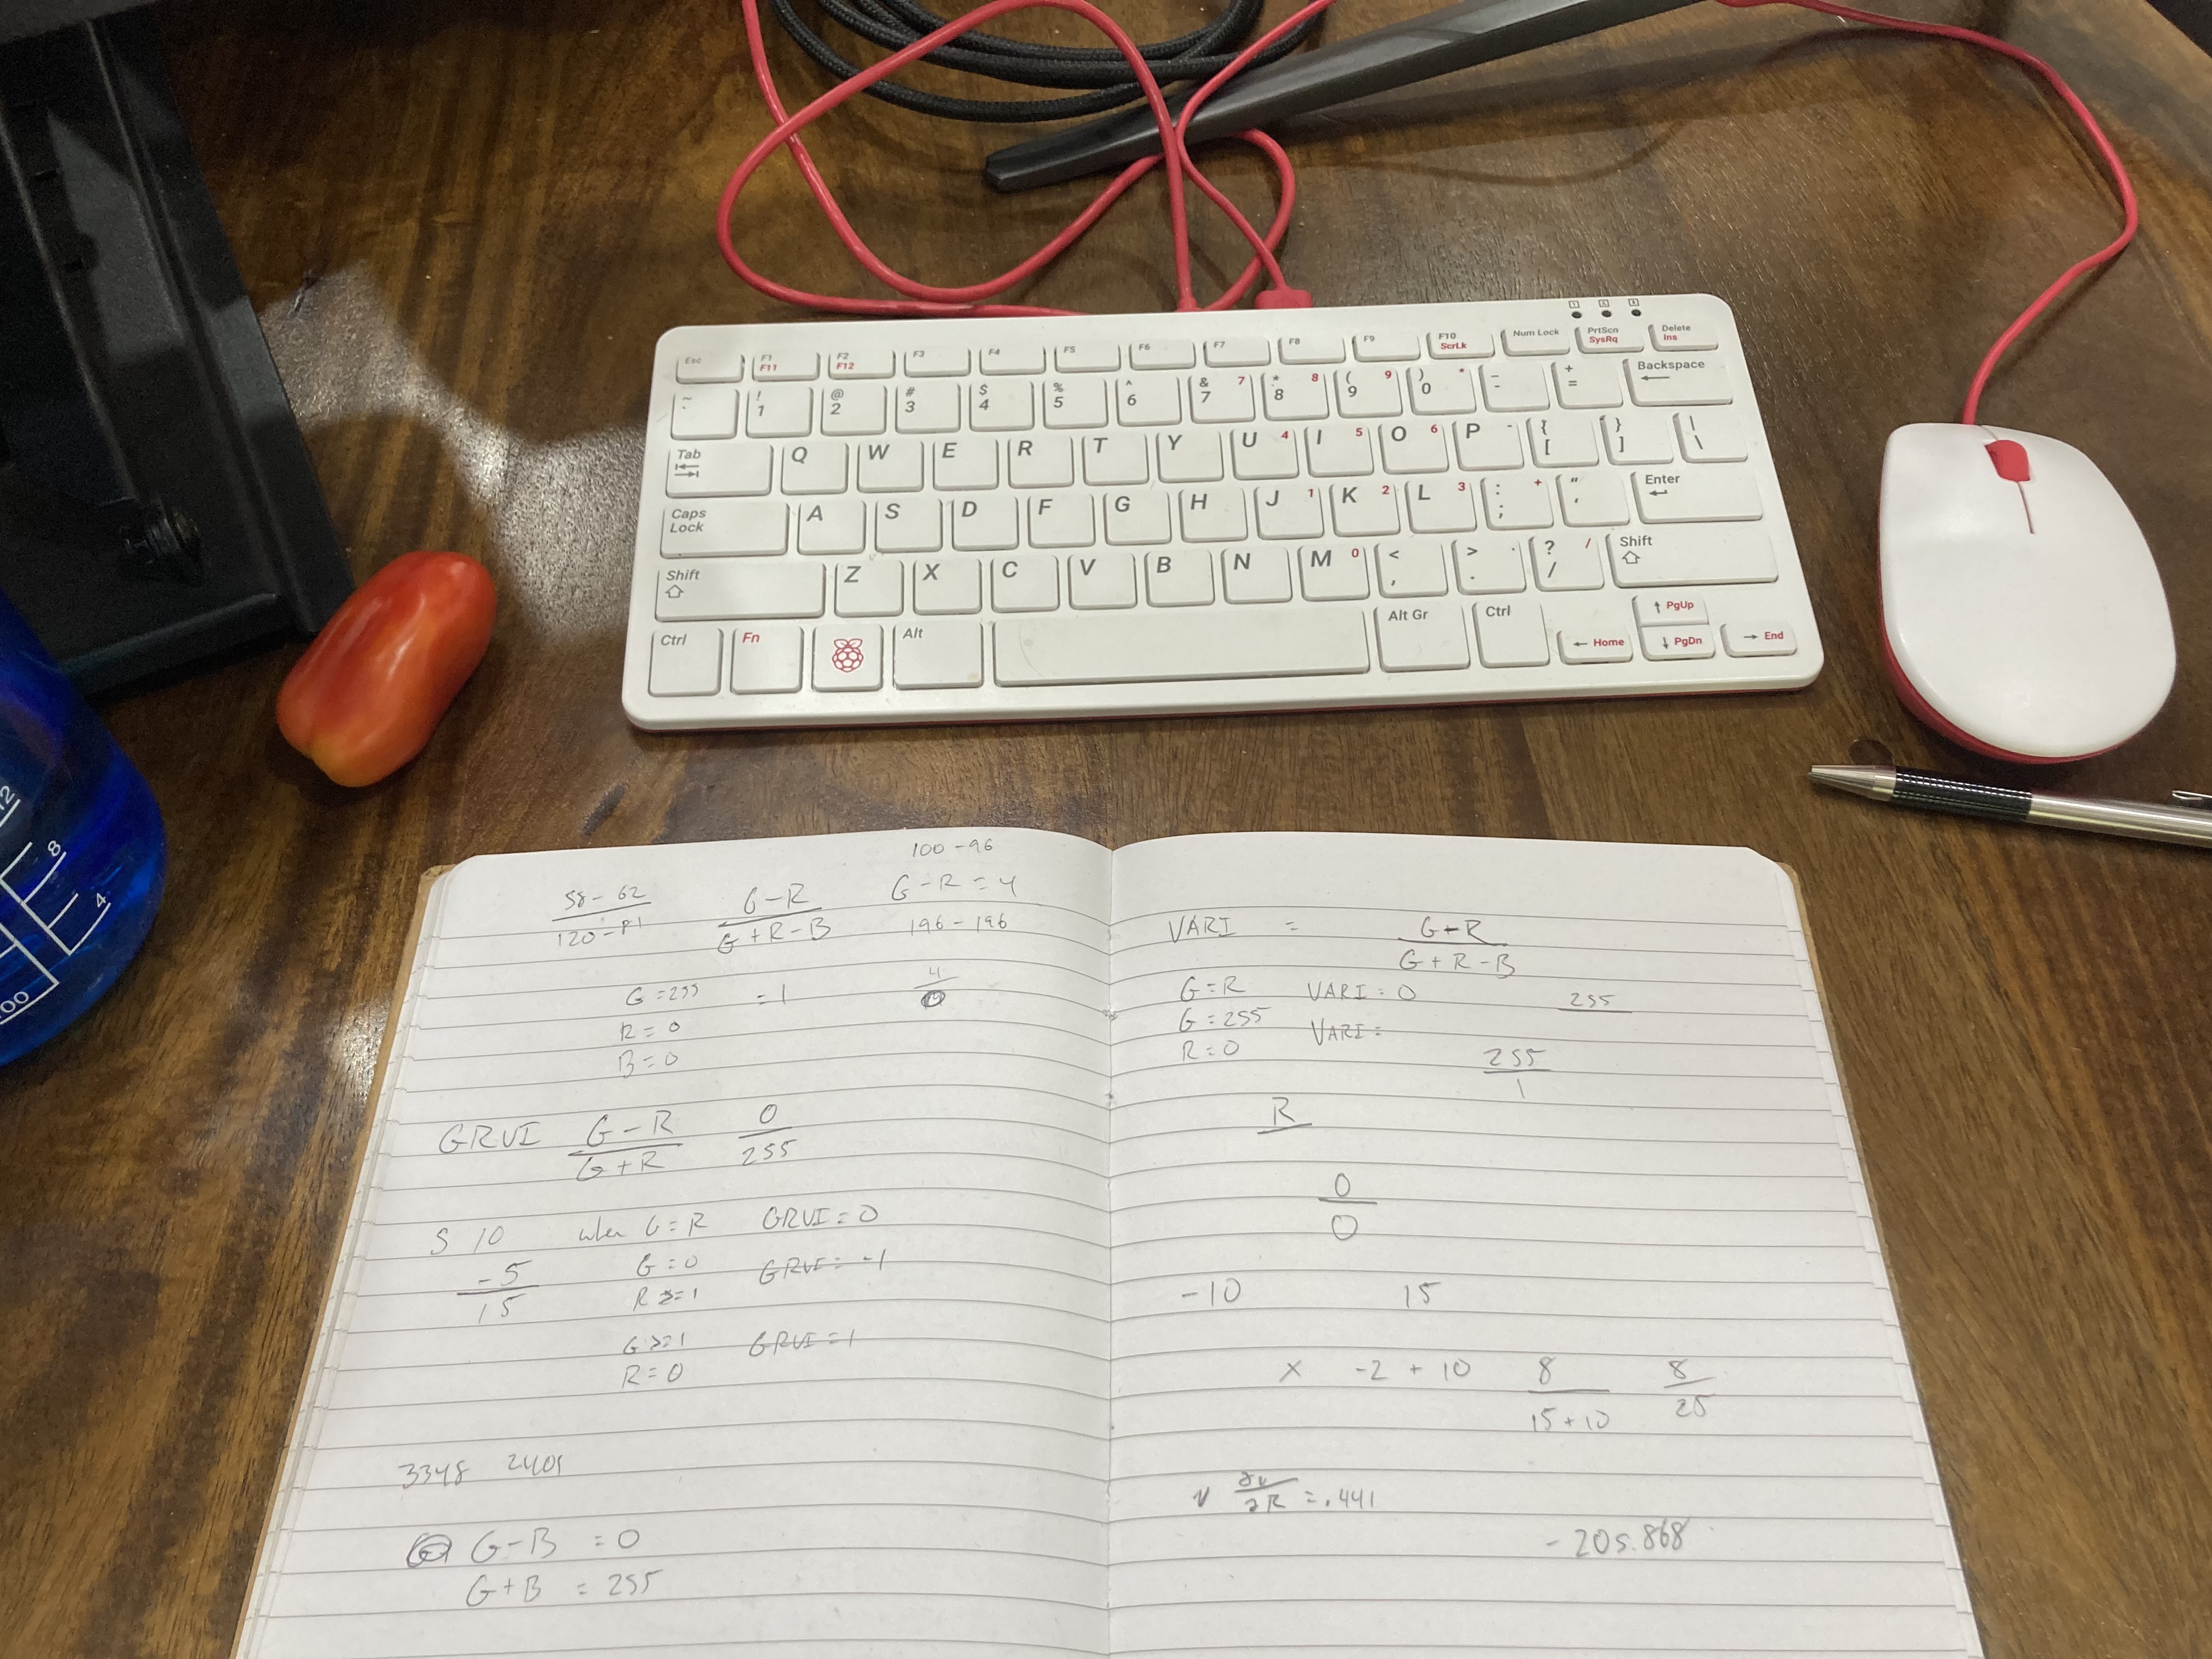 Esc F1 F11 F2 F12 F3 F4 F5 F6 F7 F8 F9 F10 ScrLk Num Lock PrtScn SysRq Delete Ins
~ ` ! 1 @ 2 # 3 $ 4 % 5 ^ 6 & 7 7 * 8 8 ( 9 9 ) 0 * _ - + = Backspace
Tab Q W E R T Y U 4 I 5 O 6 P - { [ } ] | \
Caps Lock A S D F G H J 1 K 2 L 3 : ; + " ' Enter
Shift Z X C V B N M 0 < , > . . ? / / Shift
Ctrl Fn Alt Alt Gr Ctrl Home PgUp PgDn End
12
8
4
00
100 - 96
58 - 62
120 - 81
G - R
G + R - B
G - R = 4
196 - 196
G = 255 = 1
4
0
R = 0
B = 0
GRVI G - R
G + R
0
255
5 10 when G = R GRVI = 0
-5
15
G = 0 GRVI = -1
R >= 1
G >= 1 GRVI = 1
R = 0
3348 2401
G - B = 0
G + B = 255
VARI = G - R
G + R - B
G = R VARI = 0 255
G = 255 VARI =
R = 0
255
1
R
0
0
-10 15
X -2 + 10 8 8
15 + 10 25
∂v
∂R = .441
- 205.868